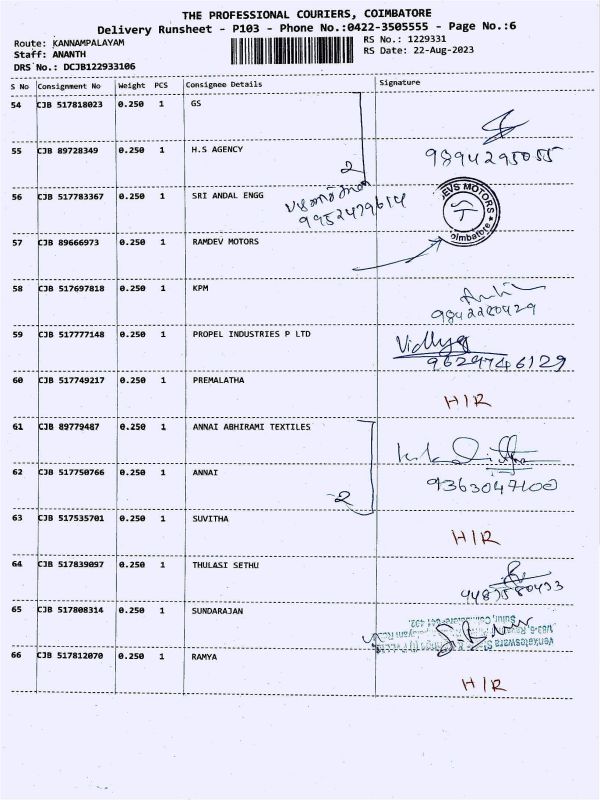 THE PROFESSIONAL COURIERS, COIMBATORE
Delivery Runsheet - P103 - Phone No.:0422-3505555 - Page No.:6
Route: KANNAMPALAYAM
Staff: ANANTH
DRS No.: DCJB122933106
RS No.: 1229331
RS Date: 22-Aug-2023
S No Consignment No Weight PCS Consignee Details Signature
54 CJB 517818023 0.250 1 GS
55 CJB 89728349 0.250 1 H.S AGENCY 9894295055
2
56 CJB 517783367 0.250 1 SRI ANDAL ENGG
9952479614
MOTORS
57 CJB 89666973 0.250 1 RAMDEV MOTORS
58 CJB 517697818 0.250 1 KPM
9842280429
59 CJB 517777148 0.250 1 PROPEL INDUSTRIES P LTD Vidhya
9629746129
60 CJB 517749217 0.250 1 PREMALATHA
H/R
61 CJB 89779487 0.250 1 ANNAI ABHIRAMI TEXTILES
62 CJB 517750766 0.250 1 ANNAI
9363047100
2
63 CJB 517535701 0.250 1 SUVITHA
H/R
64 CJB 517839097 0.250 1 THULASI SETHU
65 CJB 517808314 0.250 1 SUNDARAJAN
66 CJB 517812070 0.250 1 RAMYA
H/R